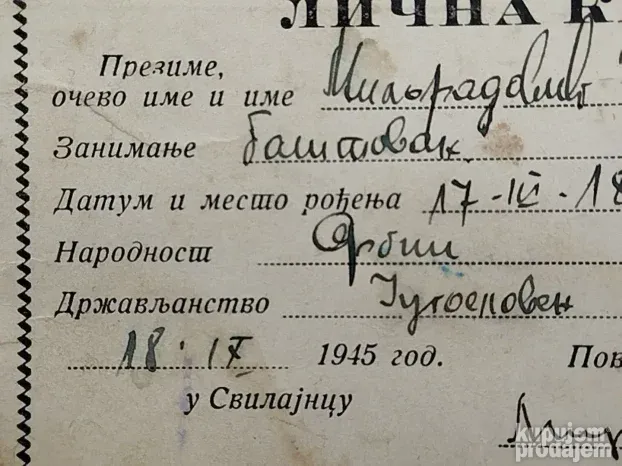 ЛИЧНА К
Презиме,
очево име и име Миљорадовић
Занимање баштован
Датум и место рођења 17-III-18
Народност Србин
Држављанство Југословен
18·IX 1945 год. Пов
у Свилајнцу
kupujem
prodajem